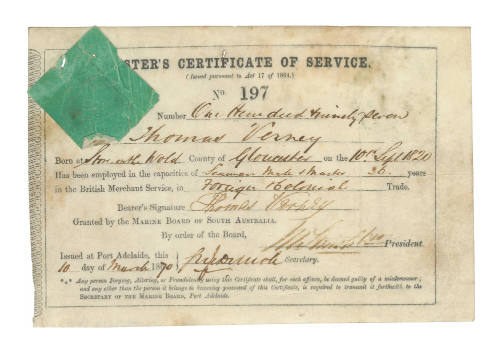 STER'S CERTIFICATE OF SERVICE.
(Issued pursuant to Act 17 of 1864.)
No. 197
Number One Hundred & ninety Seven
Thomas Verney
Born at Stow on the Wold County of Gloucester on the 10th Sept 1820
Has been employed in the capacities of Seaman Mate & Master 36 years
in the British Merchant Service, in Foreign & Colonial Trade.
Bearer's Signature Thomas Verney
Granted by the MARINE BOARD OF SOUTH AUSTRALIA.
By order of the Board,
President.
Issued at Port Adelaide, this
10 day of March 1870 Secretary.
*** Any person Forging, Altering, or Fraudulently using this Certificate shall, for such offence, be deemed guilty of a misdemeanor;
and any other than the person it belongs to becoming possessed of this Certificate, is required to transmit it forthwith to the
SECRETARY OF THE MARINE BOARD, Port Adelaide.